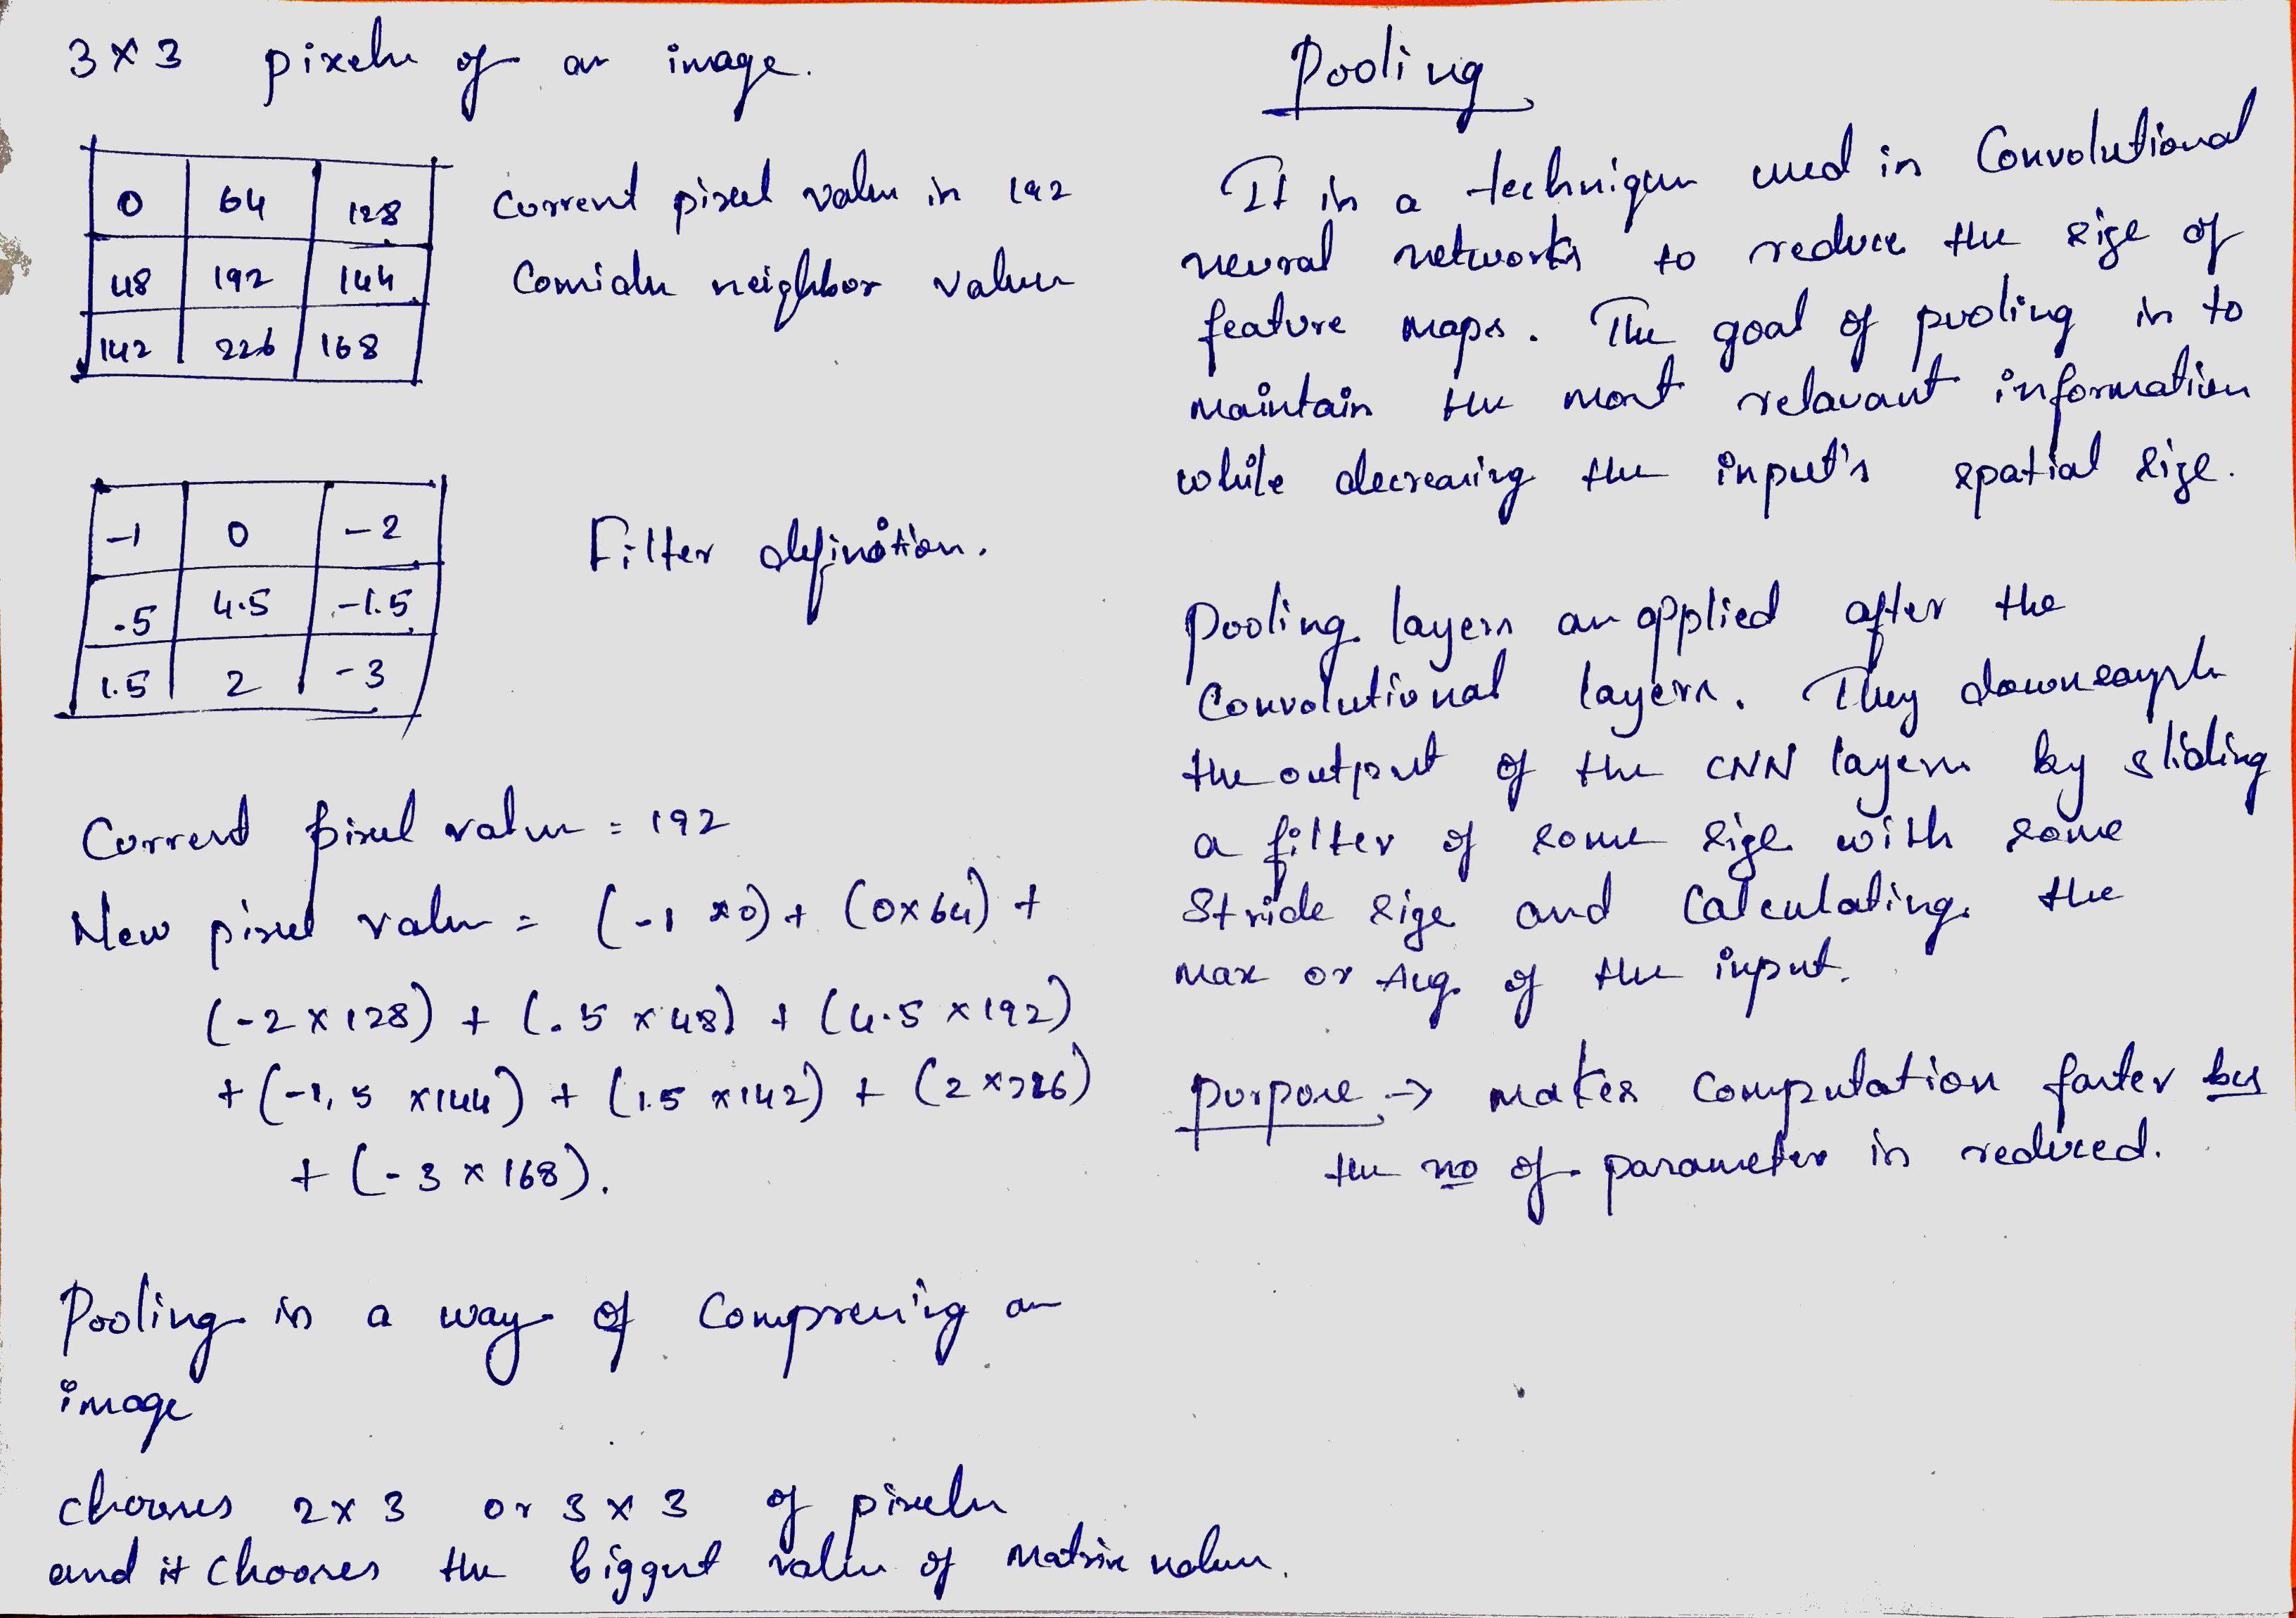 3 x 3 pixels of an image.
0 64 128
48 192 144
142 226 168
Current pixel value is 192
Consider neighbor values
-1 0 -2
.5 4.5 -1.5
1.5 2 -3
Filter definition.
Current pixel value = 192
New pixel value = (-1 x 0) + (0 x 64) +
(-2 x 128) + (.5 x 48) + (4.5 x 192)
+ (-1.5 x 144) + (1.5 x 142) + (2 x 226)
+ (-3 x 168).
Pooling is a way of compressing an
image
chooses 2 x 3 or 3 x 3 of pixels
and it chooses the biggest value of matrix values.
Pooling
It is a technique used in Convolutional
neural networks to reduce the size of
feature maps. The goal of pooling is to
maintain the most relavant information
while decreasing the input's spatial size.
Pooling layers are applied after the
Convolutional layers. They downsample
the output of the CNN layers by sliding
a filter of some size with some
Stride size and Calculating the
max or Avg. of the input.
purpose → makes Computation faster bcs
the no of parameter is reduced.